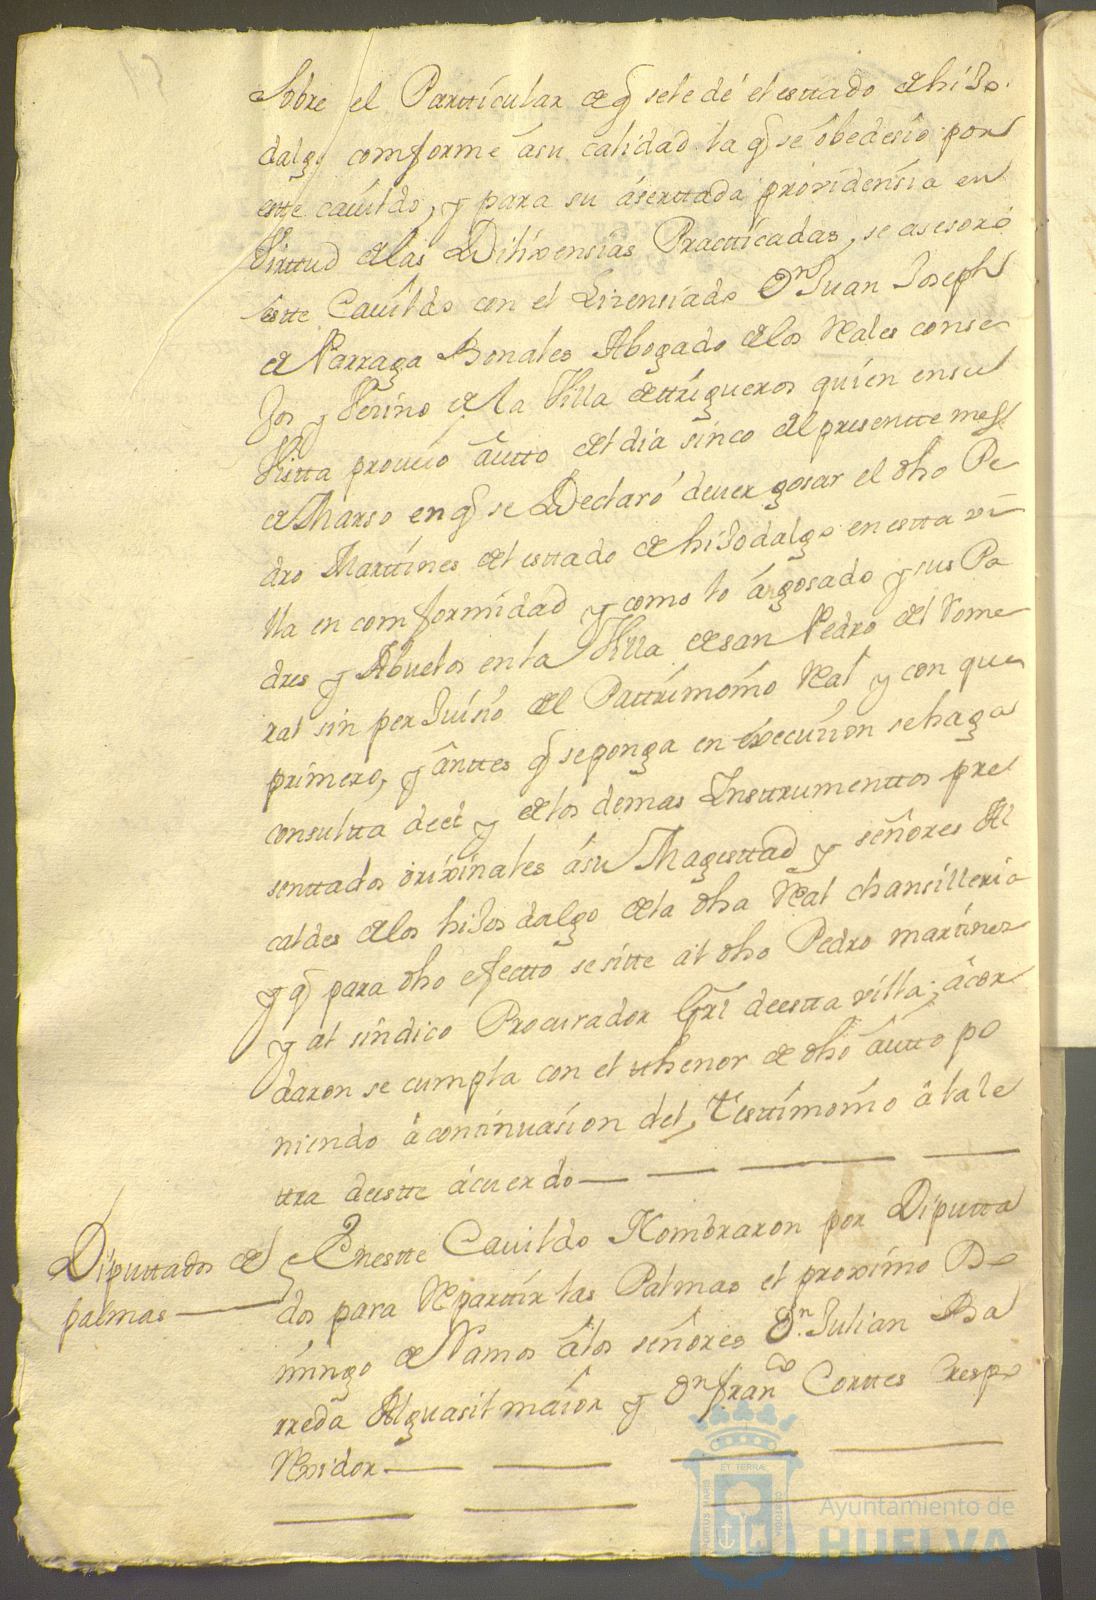 Sobre el Partticular de q̃ sele dé el esttado de hiJo
dalgo comforme ásu calidad la q̃ se obedesio por
estte cavildo, y para su ásertada providensia en
Virttud de las Dilixensias Practticadas, se asesoró
estte Cavildo con el Lizensiado Dn Juan Joseph
de Parraga Bonales Abogado de los Rales conse
Jos y Vezino de la Villa de ttrigueros quien en su
Vistta proveió autto del dia sinco del presentte mes
de Marso en q̃ se Declaró dever gosar el dho Pe
dro Marttines del esttado de hiJodalgo en estta vi
lla en comformidad y como lo á gosado y sus Pa
dres y Abuelos en la Villa de san Pedro del Rome
ral sin perJuisio del Pattrimonio Real y con que
primero, y anttes q̃ se ponga en exécuzion se haga
consultta de el y de los demas Insttrumenttos pre
senttados orixinales ásu Magesttad y señores Al
caldes de los hiJos dalgo de la dha Real chansilleria
y q̃ para dho efectto se sitte al dho Pedro martines
y al sindico Procurador Grl de estta villa; ácor
daron se cumpla con el thenor de dho autto po
niendo á continuasion del, Testtimonio á la le
ttra de estte ácuerdo
Diputtados de
palmas
En estte Cavildo Nombraron por Diputta
dos para Reparttir las Palmas el proximo Do
mingo de Ramos á los señores Dn Julian Ba
rreda Alguasil maior y Dn Franco Corttes Crespo
Rexidor
Ayuntamiento de
HUELVA